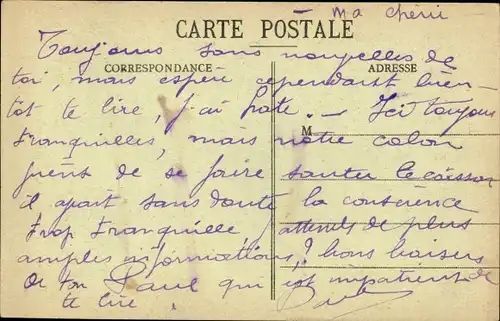 Ma chérie
CARTE POSTALE
Toujours sans nouvelles de
CORRESPONDANCE ADRESSE
toi, mais espère cependant bien-
tôt te lire, j'ai hate. — Ici toujours
M
tranquilles, mais notre colon
vient de se faire sauter le caisson
il avait sans doute la conscience
trop tranquille attends de plus
amples informations, bons baisers
de ton Paul qui est impatient de
te lire.